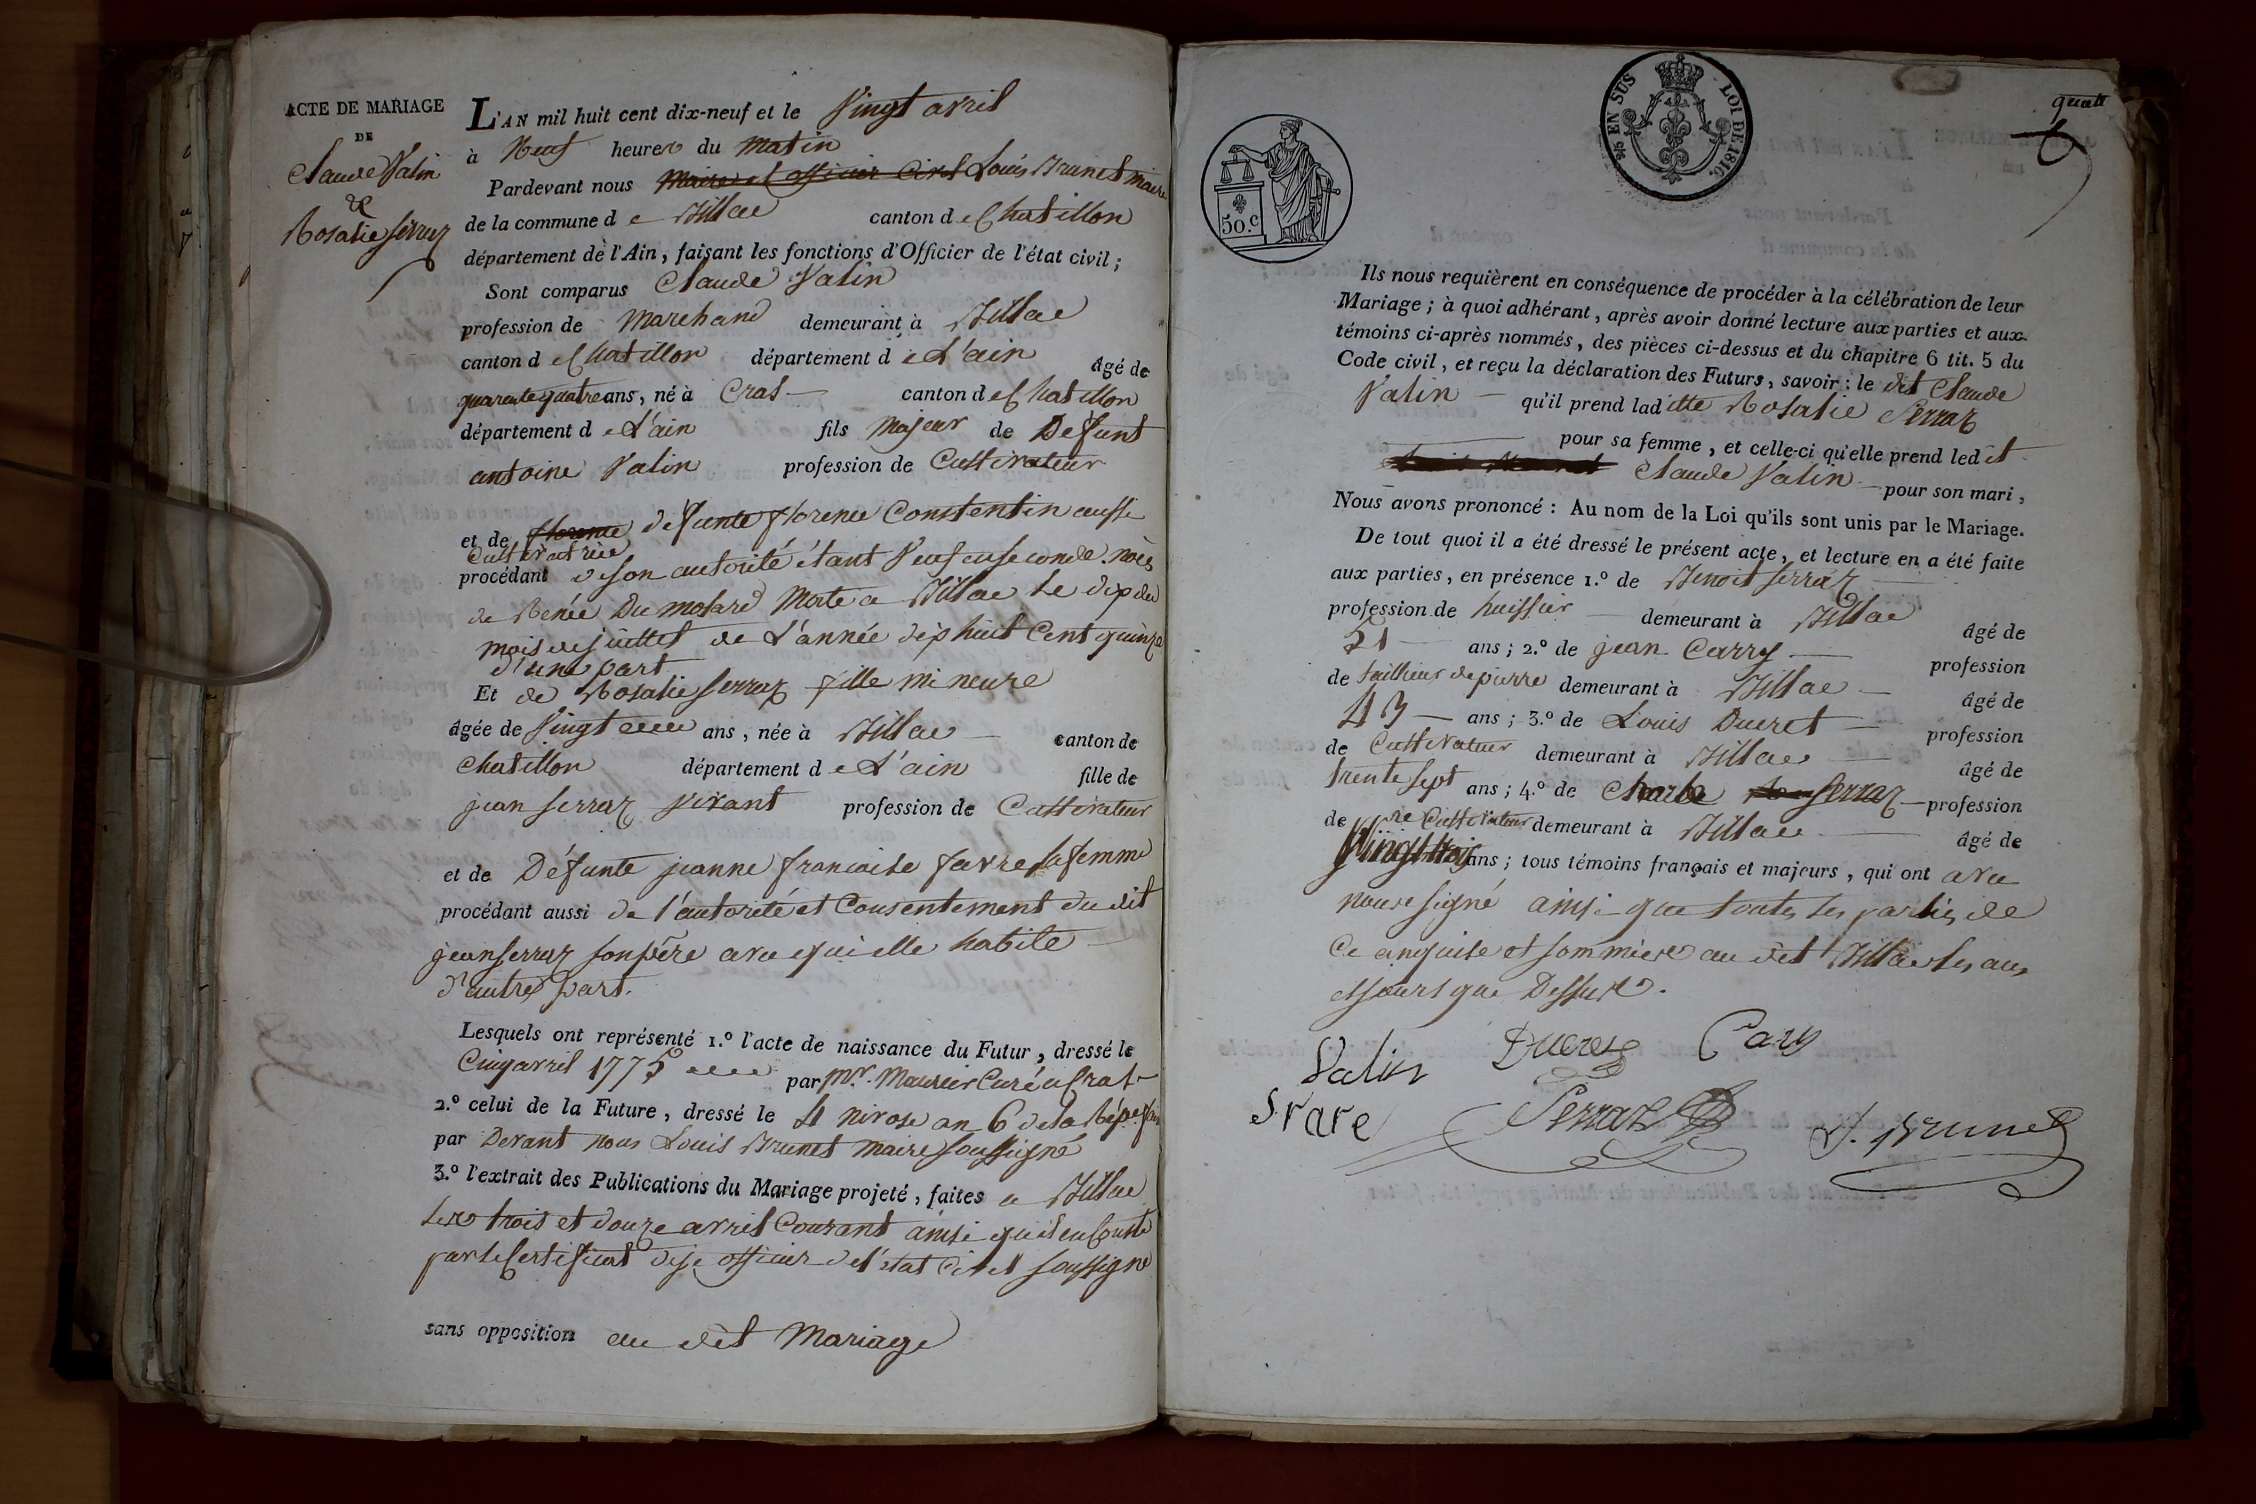 ACTE DE MARIAGE
DE
Claude Valin
&
Rosalie Serraz
L'AN mil huit cent dix-neuf et le Vingt avril
à Neuf heures du Matin
Pardevant nous Maire et officier Civil Louis Brunet maire
de la commune de Billiac canton de Chatillon
département de l'Ain, faisant les fonctions d'Officier de l'état civil ;
Sont comparus Claude Valin
profession de Marchand demeurant à Billiac
canton de Chatillon département de L'ain âgé de
quarente quatre ans, né à Cras canton de Chatillon
département de L'ain fils Majeur de Defunt
antoine Valin profession de Cultivateur
et de florence defunte florence Constentin aussi
Cultivatrice
procédant de son autorité étant Veuf en seconde noces
de Renée Dumolard Morte a Billiac le dix du
mois de juillet de L'année dix huit Cent quinze
d'une part
Et de Rosalie Serraz fille mineure
âgée de Vingt un ans, née à Billiac canton de
Chatillon département de L'ain fille de
jean Serraz vivant profession de Cultivateur
et de Défunte jeanne francoise favre sa femme
procédant aussi de l'autorité et Consentement du dit
jean Serraz son père avec qui elle habite
d'autre part.
Lesquels ont représenté 1.º l'acte de naissance du Futur, dressé le
Cinq avril 1775 par Mr. Maurier Curé a Cras
2.º celui de la Future, dressé le 4 nivose an 6 de la Rép. fse
par Devant nous Louis Brunet Maire soussigné
3.º l'extrait des Publications du Mariage projeté, faites a Billiac
les trois et douze avril Courant ainsi qu'il en Conste
par le Certificat de je officier de l'état Civil soussigné
sans opposition au dit Mariage
5/10 EN SUS LOI DE 1816.
50.c
quatr
6
Ils nous requièrent en conséquence de procéder à la célébration de leur
Mariage ; à quoi adhérant, après avoir donné lecture aux parties et aux
témoins ci-après nommés, des pièces ci-dessus et du chapitre 6 tit. 5 du
Code civil, et reçu la déclaration des Futurs, savoir : le dit Claude
Valin qu'il prend laditte Rosalie Serraz
pour sa femme, et celle-ci qu'elle prend ledit
Claude Valin pour son mari,
Nous avons prononcé : Au nom de la Loi qu'ils sont unis par le Mariage.
De tout quoi il a été dressé le présent acte, et lecture en a été faite
aux parties, en présence 1.º de Benoit Serraz
profession de huissier demeurant à Billiac âgé de
51 ans ; 2.º de jean Carry profession
de tailleur de pierre demeurant à Billiac âgé de
43 ans ; 3.º de Louis Ducret profession
de Cultivateur demeurant à Billiac âgé de
trente sept ans ; 4.º de Charle Serraz profession
de de Cultivateur demeurant à Billiac âgé de
Vingt trois ans ; tous témoins français et majeurs, qui ont avec
nous signé ainsi que toutes les parties de
ce enquise et sommiere au dit Billiac les an
et jours que Dessus.
Valin Ducret Cary
Serraz
L. Brunet